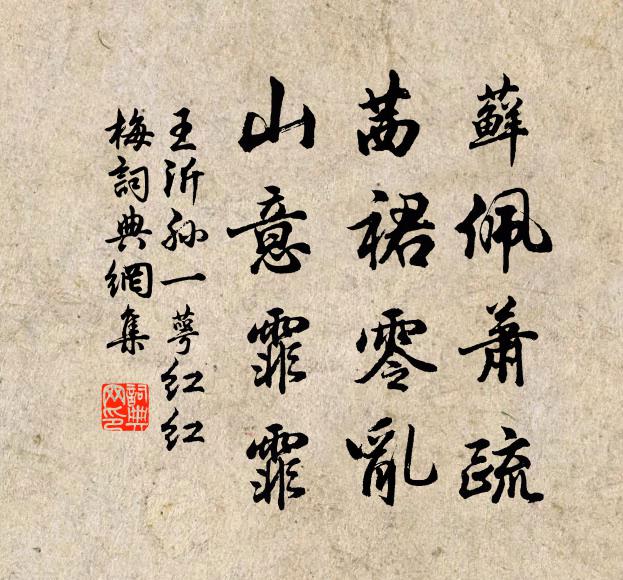 蘚佩蕭疏
茜裙零亂
山意霏霏
王沂孫一萼紅紅
梅詞典網集
詞典
网印